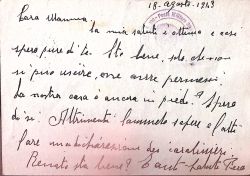 18. agosto. 1943
Cara Mamma,
la mia salute è ottima e così
spero pure di te. Sto bene, solo che non
si può uscire, ore avere permessi.
La nostra casa è ancora in piedi? Spero
di sì. Altrimenti fammelo sapere e fatti
fare dai carabinieri.
Renato sta bene? Tanti saluti